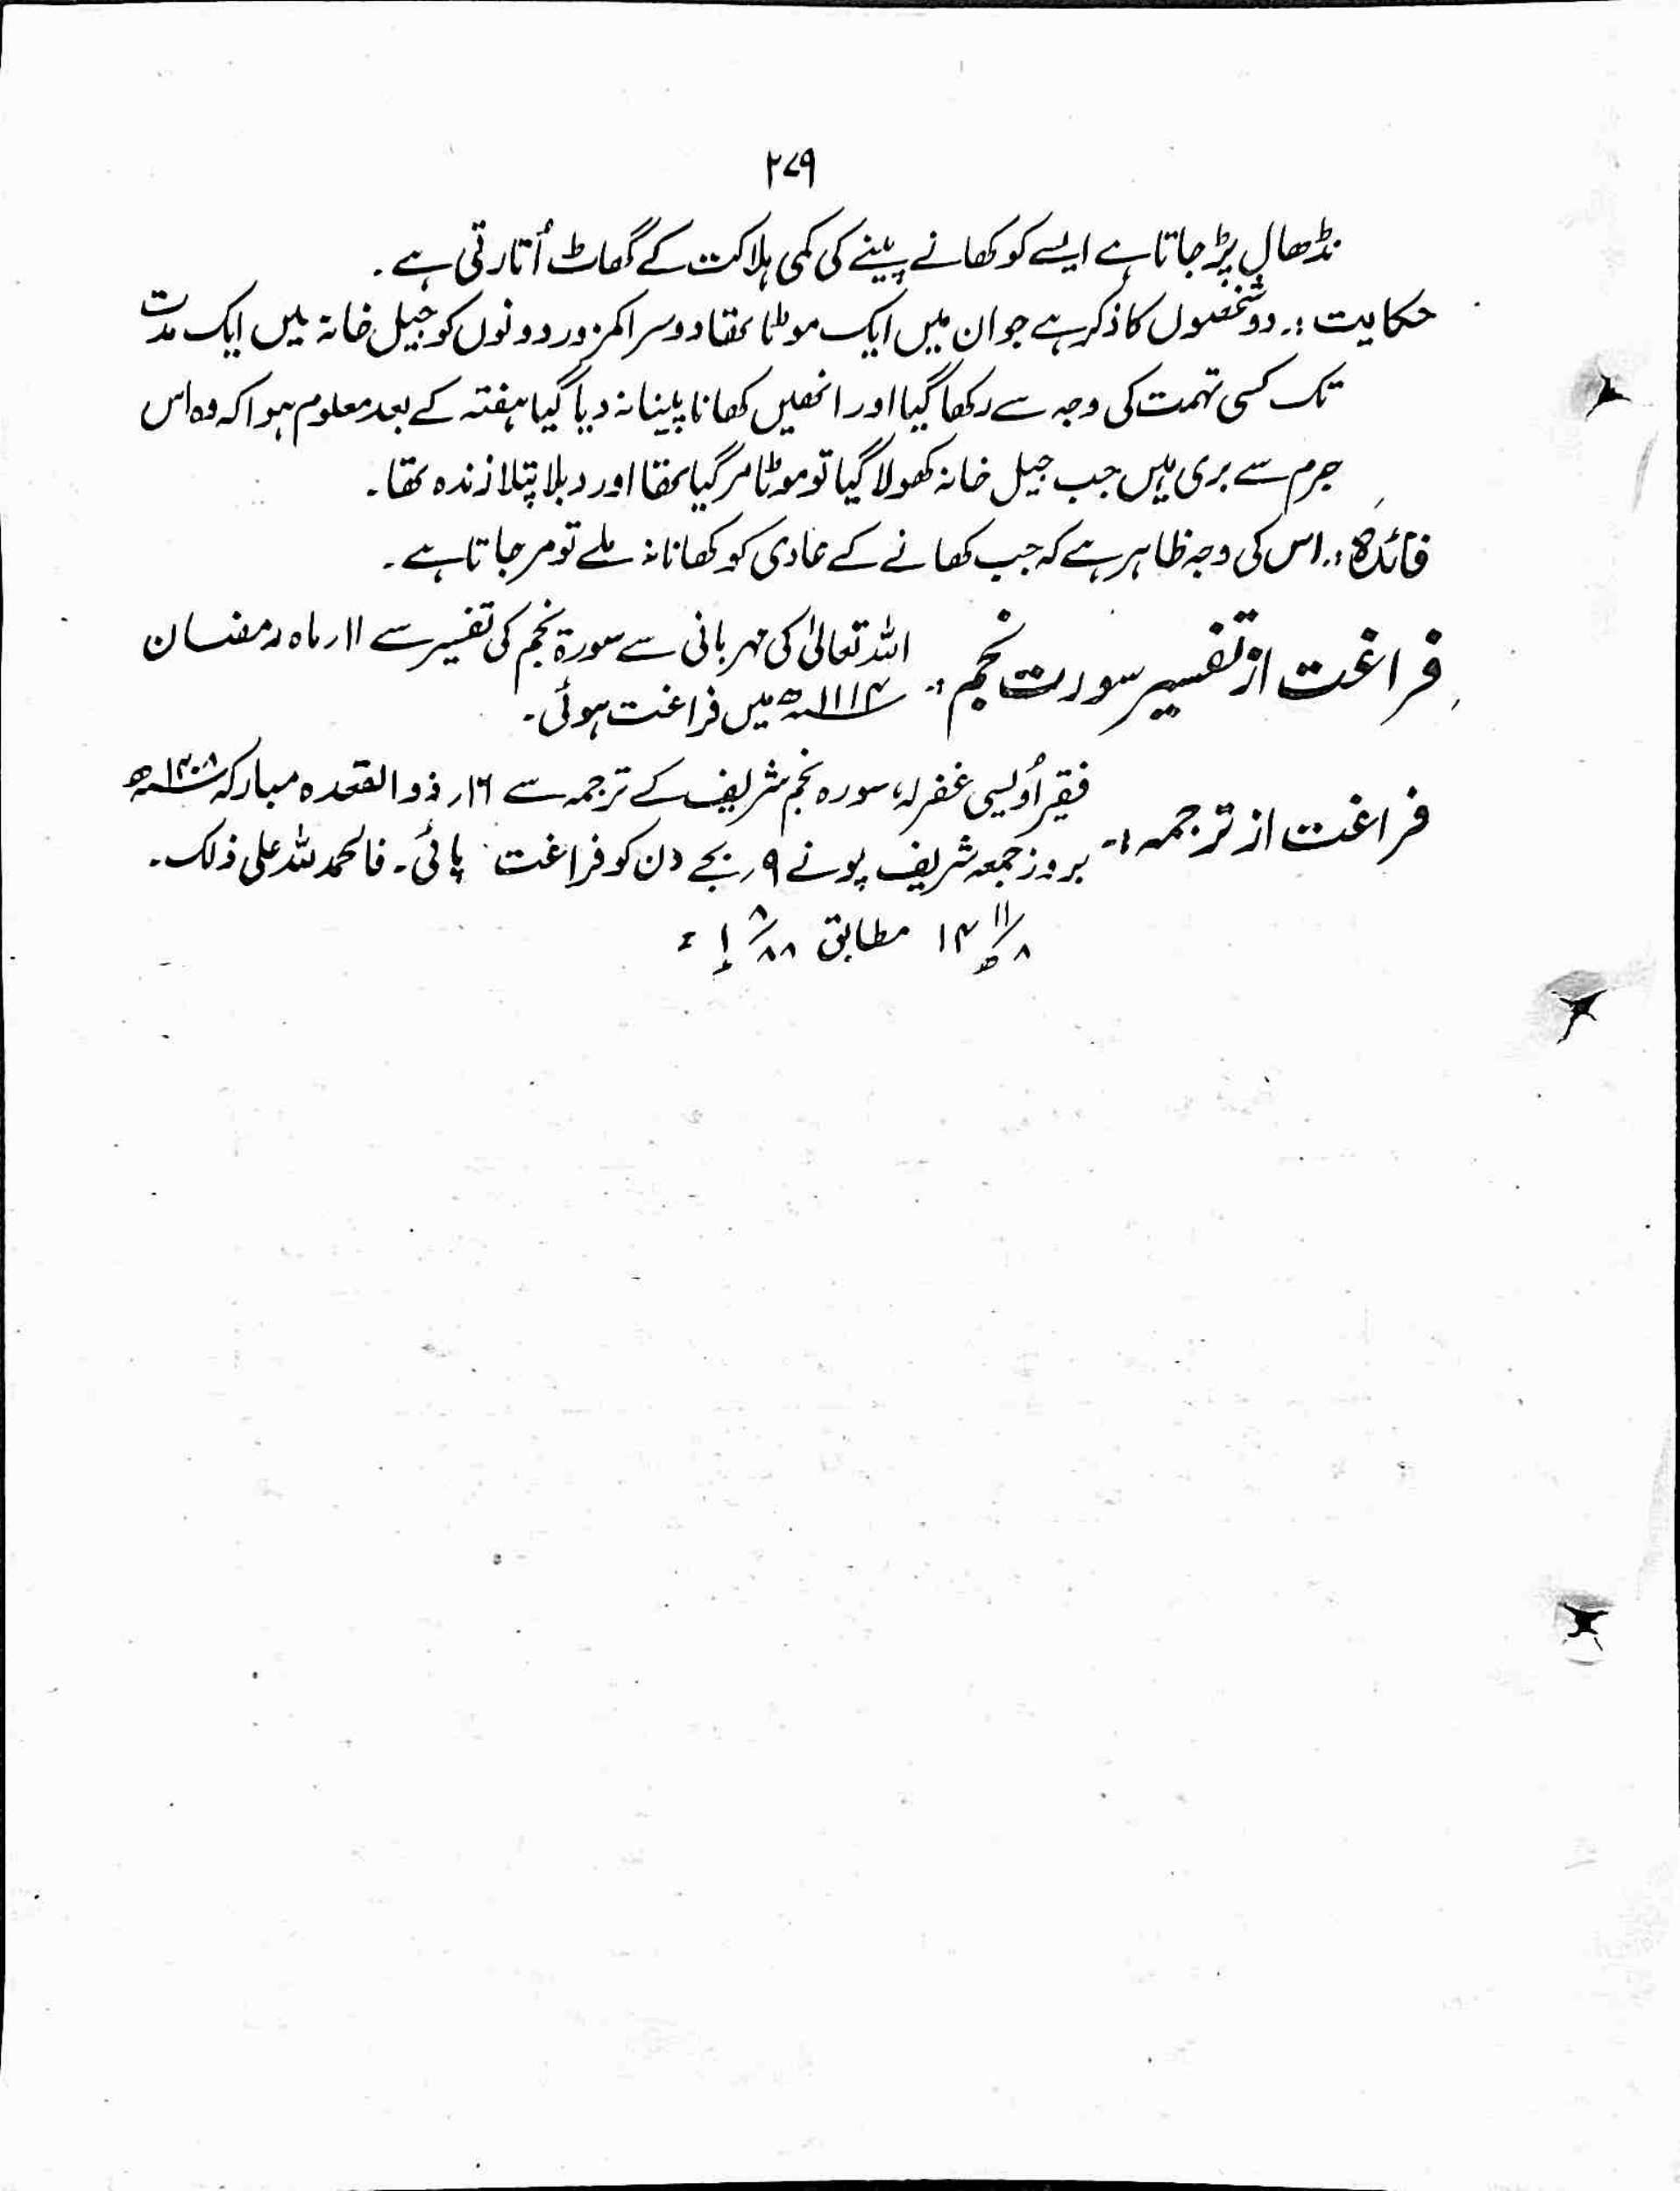 ۲۷۹
نڈھال پڑ جاتا ہے ایسے کو کھانے پینے کی کمی ہلاکت کے گھاٹ اُتارتی ہے۔
حکایت :۔ دو شخصوں کا ذکر ہے جو ان میں ایک موٹا تھا دوسرا کمزور دونوں کو جیل خانہ میں ایک مدت
تک کسی تہمت کی وجہ سے رکھا گیا اور انھیں کھانا پینا نہ دیا گیا ہفتہ کے بعد معلوم ہوا کہ وہ اس
جرم سے بری ہیں جب جیل خانہ کھولا گیا تو موٹا مر گیا تھا اور دبلا پتلا زندہ تھا۔
فائدہ :۔ اس کی وجہ ظاہر ہے کہ جب کھانے کے عادی کو کھانا نہ ملے تو مر جاتا ہے۔
فراغت از تفسیر سورت نجم :۔ اللہ تعالیٰ کی مہربانی سے سورۃ نجم کی تفسیر سے ۱۱ر ماہ رمضان
۱۱۱۴ھ میں فراغت ہوئی۔
فراغت از ترجمہ :۔ فقیر اُویسی غفرلہ، سورہ نجم شریف کے ترجمہ سے ۱۶ر ذوالقعدہ مبارکہ ۱۴۰۸ھ
بروز جمعہ شریف پونے ۹ر بجے دن کو فراغت پائی۔ فالحمد للہ علی ذلک۔
۱۱/۸ ۱۴ھ مطابق ۸/۸۸ ۱ ء